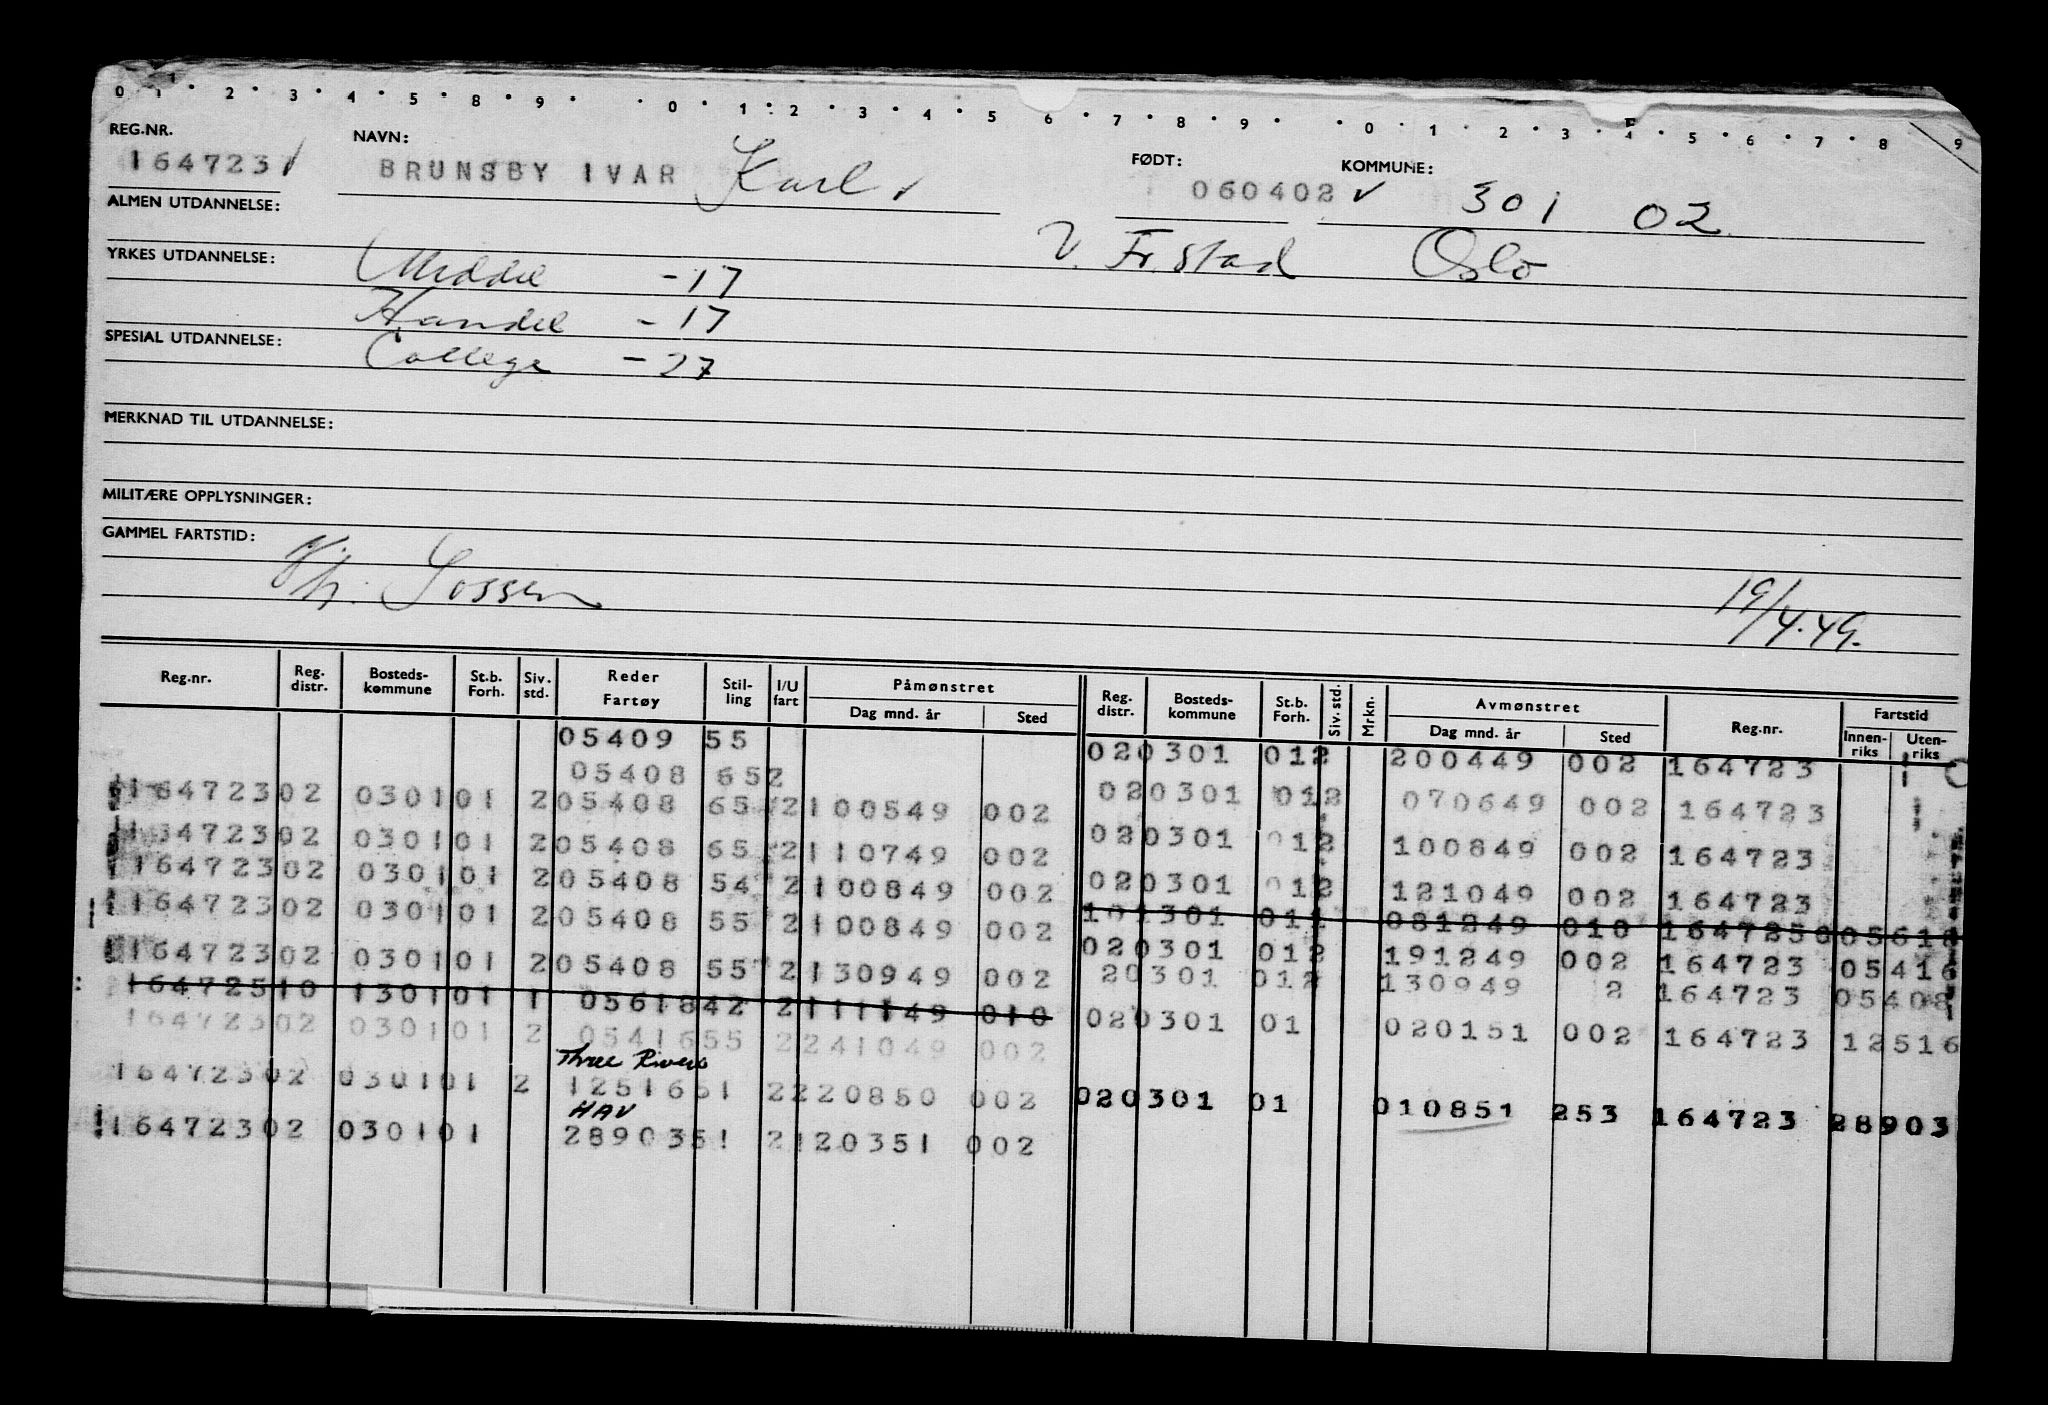 0 1 2 3 4 5 8 9 0 1 2 3 4 5 6 7 8 9 0 1 2 3 4 5 6 7 8 9
REG.NR. NAVN: FØDT: KOMMUNE:
164723 BRUNSBY IVAR Karl 060402 301 02
ALMEN UTDANNELSE: V. Fr.stad Oslo
YRKES UTDANNELSE: Middel -17
Handel -17
SPESIAL UTDANNELSE: College -27
MERKNAD TIL UTDANNELSE:
MILITÆRE OPPLYSNINGER:
GAMMEL FARTSTID:
19/4.49.
Reg.nr. Reg. distr. Bosteds-kommune St.b. Forh. Siv. std. Reder Fartøy Stil-ling I/U fart Påmønstret Dag mnd. år Sted Reg. distr. Bosteds-kommune St.b. Forh. Siv. std. Mrkn. Avmønstret Dag mnd. år Sted Reg.nr. Fartstid Innen-riks Uten-riks
05409 55 020301 012 200449 002 164723
05408 652
164723 02 0301 01 2 05408 65 2 100549 002 020301 012 070649 002 164723
164723 02 0301 01 2 05408 65 2 110749 002 020301 012 100849 002 164723
164723 02 0301 01 2 05408 54 2 100849 002 020301 012 121049 002 164723
164723 02 0301 01 2 05408 55 2 100849 002 101301 011 081249 010 164725 005618
164723 02 0301 01 2 05408 55 2 130949 002 020301 012 191249 002 164723 05416
164725 10 1301 01 1 05618 42 2 111149 010 20301 012 130949 2 164723 05408
164723 02 0301 01 2 05416 55 2 241049 002 020301 01 020151 002 164723 12516
Three Rivers
164723 02 0301 01 2 12516 51 2 220850 002 020301 01 010851 253 164723 28903
HAV
164723 02 0301 01 28903 51 2 120351 002